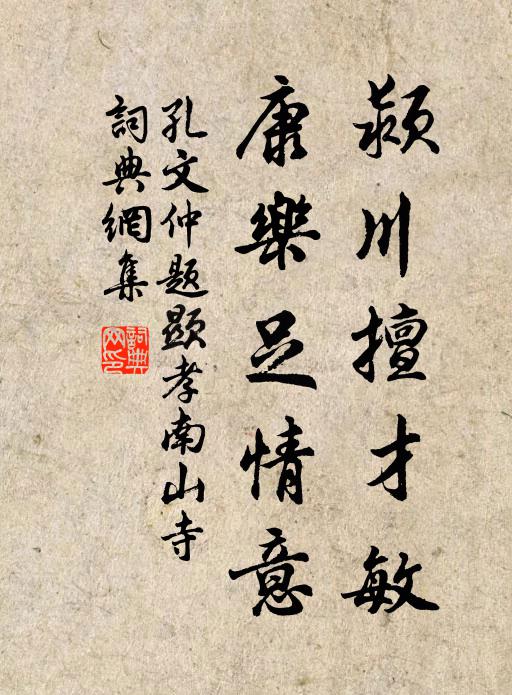 颍川擅才敏
康樂足情意
孔文仲题顕孝南山寺
詞典網集
詞典網印